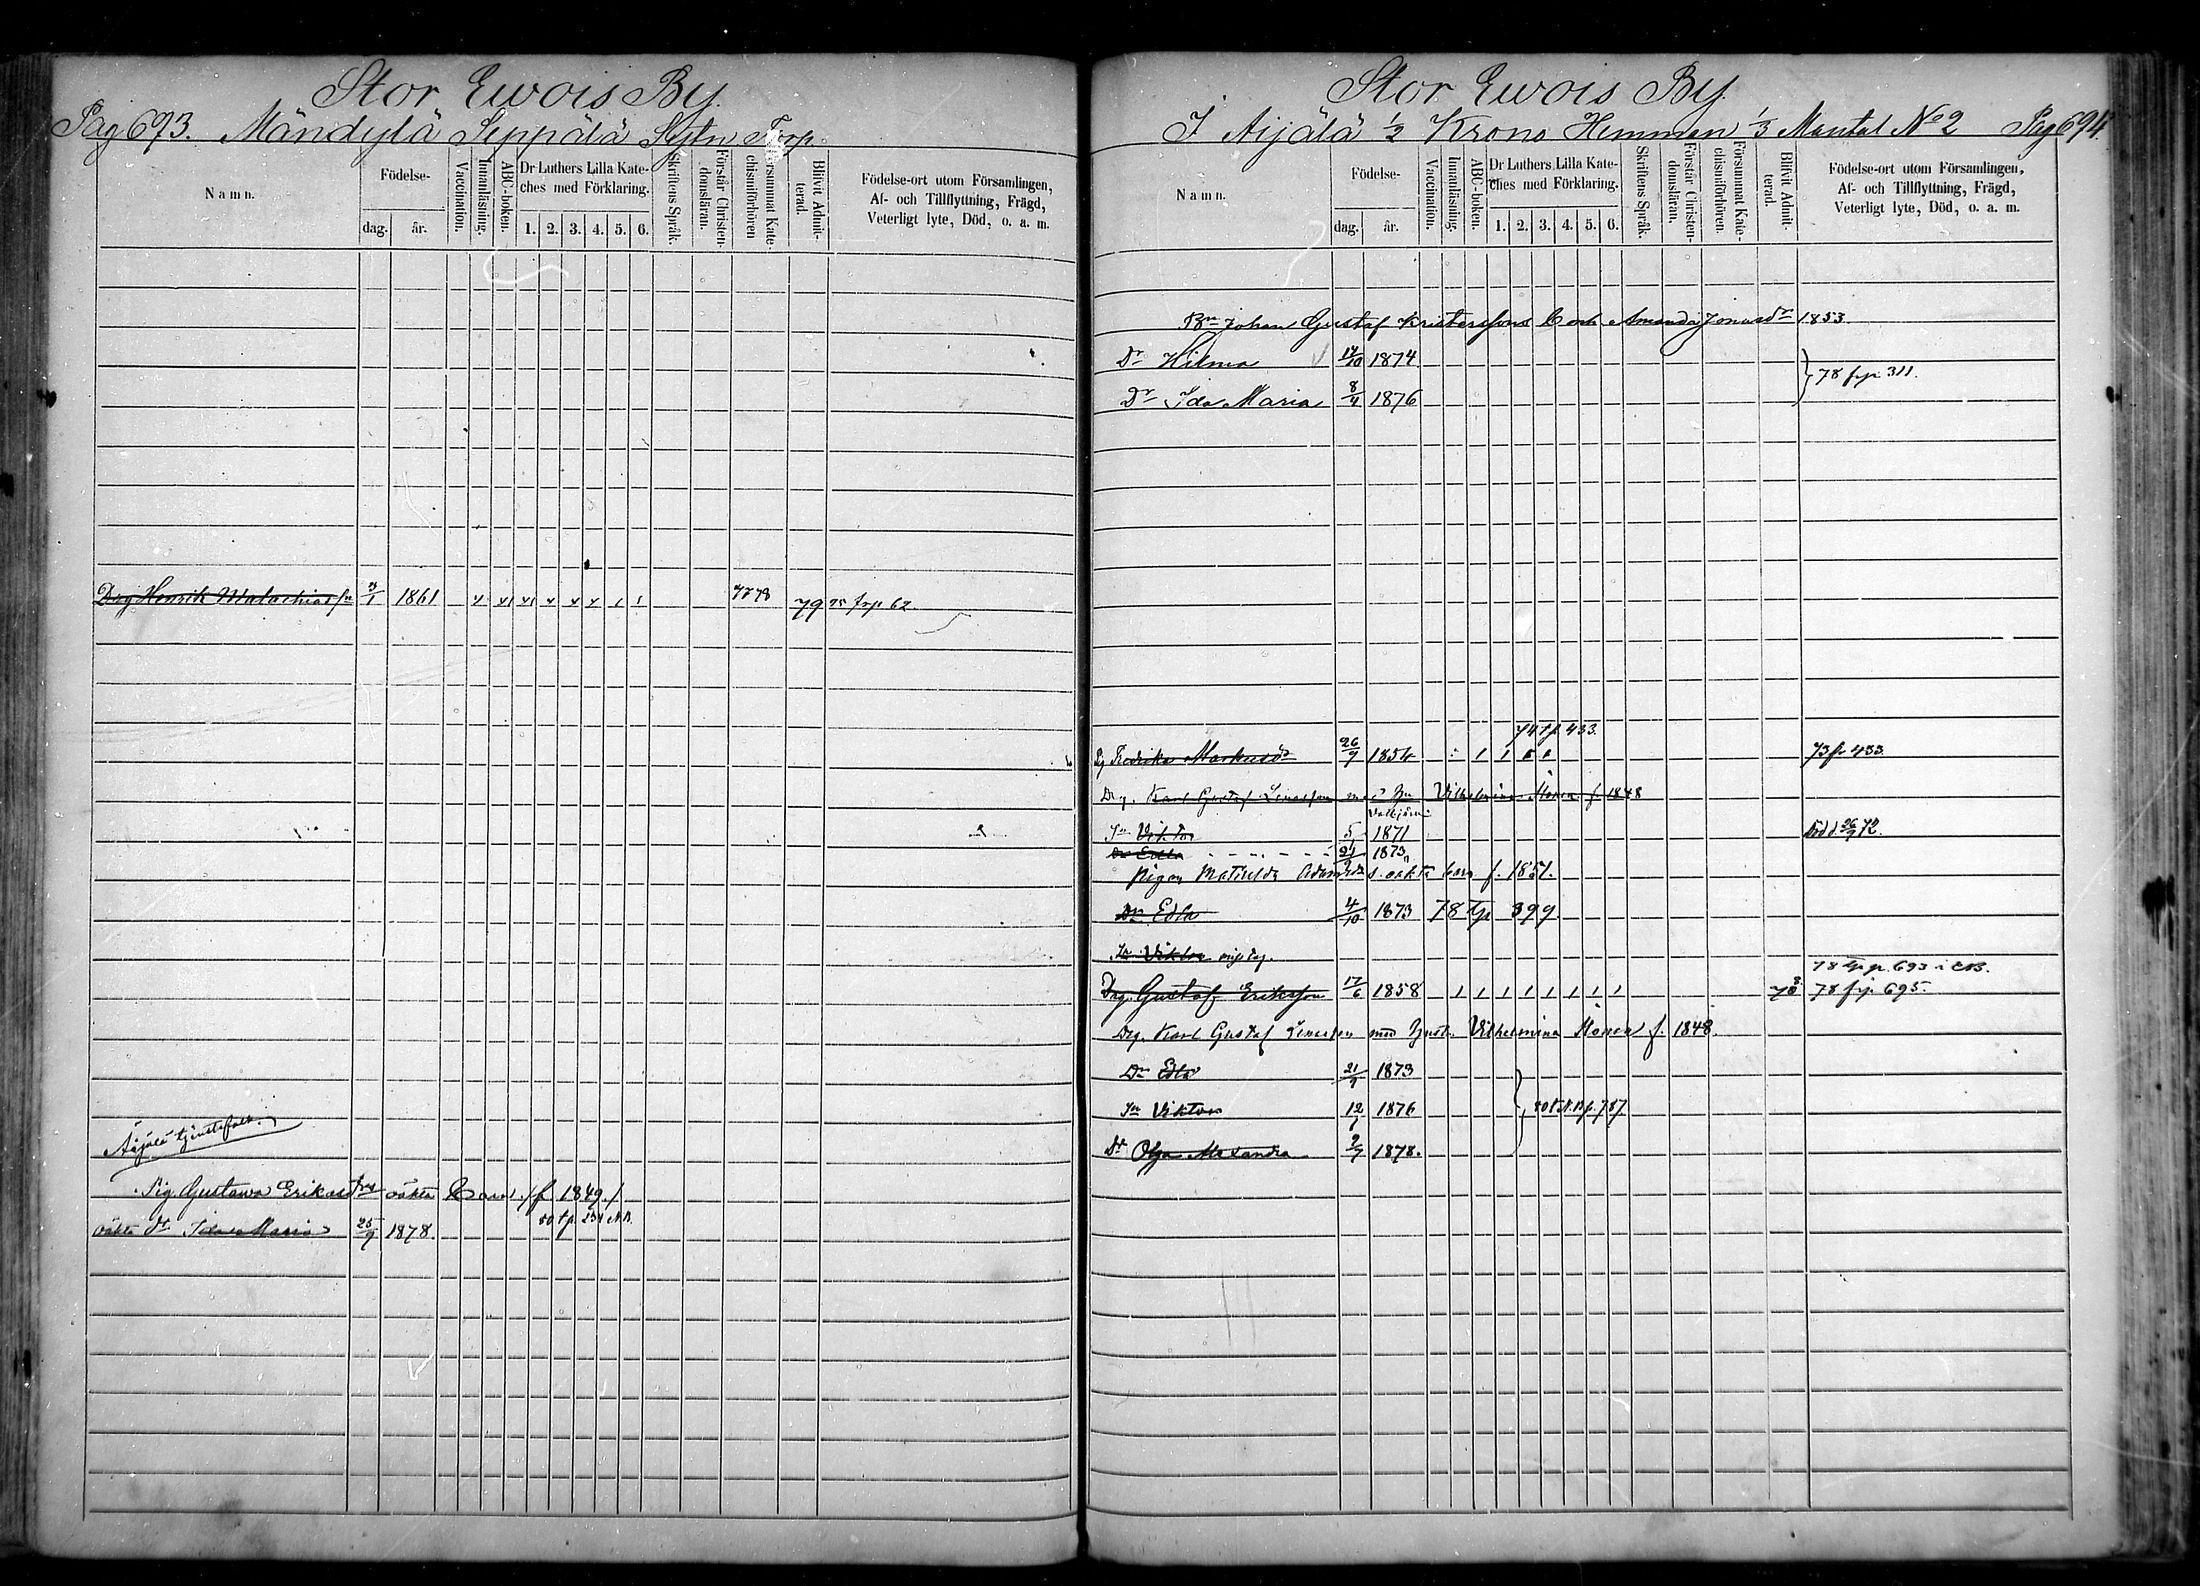 Stor Ewois By.
Pag 693. Mändylä Seppälä Sytn Torp.
Namn.
Födelse-
dag. år.
Vaccination.
Innanläsning.
ABC-boken.
Dr Luthers Lilla Kate-
ches med Förklaring.
1. 2. 3. 4. 5. 6.
Skriftens Språk.
Förstår Christen-
domsläran.
Försummat Kate-
chismiförhören
Blifvit Admit-
terad.
Födelse-ort utom Församlingen,
Af- och Tillflyttning, Frägd,
Veterligt lyte, Död, o. a. m.
Drg Henrik Malachias sn 3/1 1861 77 78 79 75 frp 62
Äijälä tjenstefolk.
Pig. Gustawa Eriksdtrs oäkta barn. / f 1849 /
80 tp. 234 N.B.
oäkta dr Ida Maria 25/9 1878.
Stor Ewois By.
I Aijälä 1/2 Krono Hemman 1/3 Mantal No 2 Pag 694
Namn.
Födelse-
dag. år.
Vaccination.
Innanläsning.
ABC-boken.
Dr Luthers Lilla Kate-
ches med Förklaring.
1. 2. 3. 4. 5. 6.
Skriftens Språk.
Förstår Christen-
domsläran.
Försummat Kate-
chismiförhören.
Blifvit Admit-
terad.
Födelse-ort utom Församlingen,
Af- och Tillflyttning, Frägd,
Veterligt lyte, Död, o. a. m.
Bn Johan Gustaf Kristerssons b och Amanda Jonasdr 1853
Dr Hilma 14/10 1874
78 frp 311.
Dr Ida Maria 8/4 1876
74 tp 433.
Pig Fredrika Markusdr 26/9 1854 73 fr 433
Drg. Karl Gustaf med Hu Vilhelmina f. 1848
Sn Viktor 5 1871 Död d. 26/9 72.
Dr Edla 21/9 1873
Pigan Mathilda Adamsdrs oäkta barn f. 1851.
Dr Edla 4/10 1873 78 tp 399
Sn Viktor
78 tp p. 693 i
Drg. Gustaf Eriksson 17/6 1858 78 78 frp. 695.
Drg. Karl Gustaf med Hustr. Vilhelmina f. 1848.
Dr Edla 21/9 1873
Sn Viktor 12/7 1876 80 t N.B p. 787
Dr Olga Alexandra 2/7 1878.